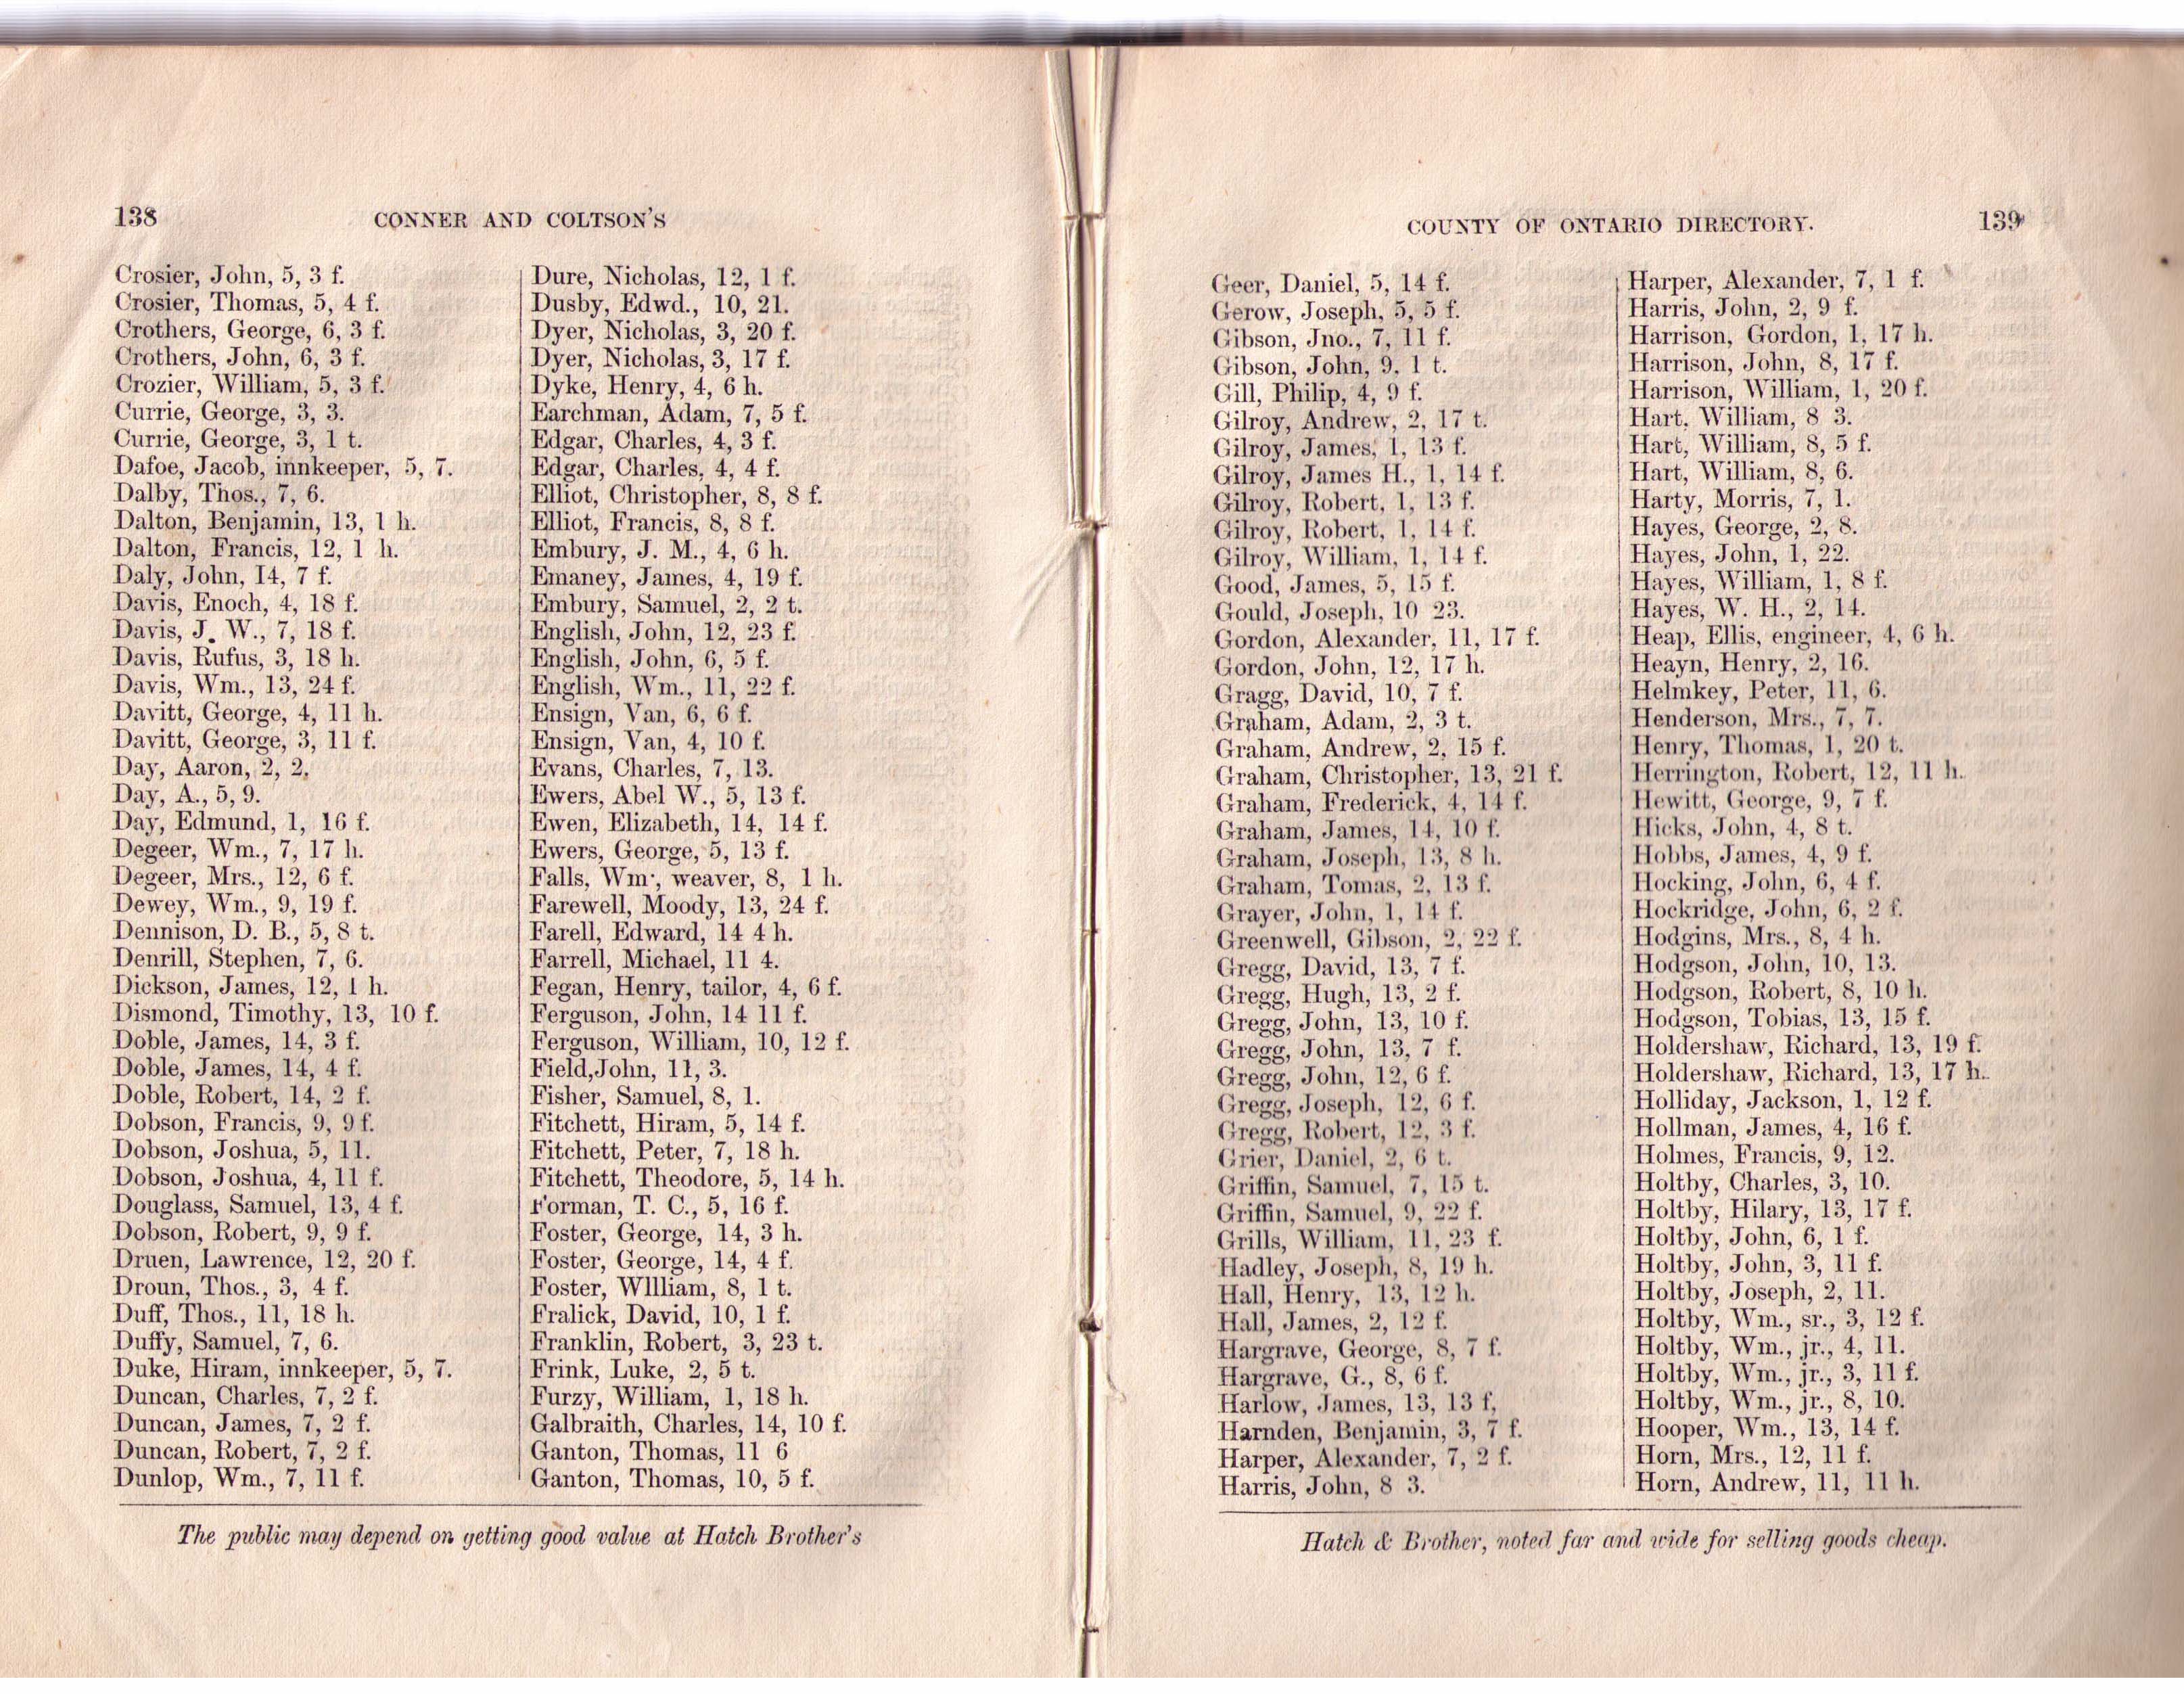 138
CONNER AND COLTSON'S
Crosier, John, 5, 3 f.
Crosier, Thomas, 5, 4 f.
Crothers, George, 6, 3 f.
Crothers, John, 6, 3 f.
Crozier, William, 5, 3 f.
Currie, George, 3, 3.
Currie, George, 3, 1 t.
Dafoe, Jacob, innkeeper, 5, 7.
Dalby, Thos., 7, 6.
Dalton, Benjamin, 13, 1 h.
Dalton, Francis, 12, 1 h.
Daly, John, I4, 7 f.
Davis, Enoch, 4, 18 f.
Davis, J. W., 7, 18 f.
Davis, Rufus, 3, 18 h.
Davis, Wm., 13, 24 f.
Davitt, George, 4, 11 h.
Davitt, George, 3, 11 f.
Day, Aaron, 2, 2.
Day, A., 5, 9.
Day, Edmund, 1, 16 f.
Degeer, Wm., 7, 17 h.
Degeer, Mrs., 12, 6 f.
Dewey, Wm., 9, 19 f.
Dennison, D. B., 5, 8 t.
Denrill, Stephen, 7, 6.
Dickson, James, 12, 1 h.
Dismond, Timothy, 13, 10 f.
Doble, James, 14, 3 f.
Doble, James, 14, 4 f.
Doble, Robert, 14, 2 f.
Dobson, Francis, 9, 9 f.
Dobson, Joshua, 5, 11.
Dobson, Joshua, 4, 11 f.
Douglass, Samuel, 13, 4 f.
Dobson, Robert, 9, 9 f.
Druen, Lawrence, 12, 20 f.
Droun, Thos., 3, 4 f.
Duff, Thos., 11, 18 h.
Duffy, Samuel, 7, 6.
Duke, Hiram, innkeeper, 5, 7.
Duncan, Charles, 7, 2 f.
Duncan, James, 7, 2 f.
Duncan, Robert, 7, 2 f.
Dunlop, Wm., 7, 11 f.
Dure, Nicholas, 12, 1 f.
Dusby, Edwd., 10, 21.
Dyer, Nicholas, 3, 20 f.
Dyer, Nicholas, 3, 17 f.
Dyke, Henry, 4, 6 h.
Earchman, Adam, 7, 5 f.
Edgar, Charles, 4, 3 f.
Edgar, Charles, 4, 4 f.
Elliot, Christopher, 8, 8 f.
Elliot, Francis, 8, 8 f.
Embury, J. M., 4, 6 h.
Emaney, James, 4, 19 f.
Embury, Samuel, 2, 2 t.
English, John, 12, 23 f.
English, John, 6, 5 f.
English, Wm., 11, 22 f.
Ensign, Van, 6, 6 f.
Ensign, Van, 4, 10 f.
Evans, Charles, 7, 13.
Ewers, Abel W., 5, 13 f.
Ewen, Elizabeth, 14, 14 f.
Ewers, George, 5, 13 f.
Falls, Wm·, weaver, 8, 1 h.
Farewell, Moody, 13, 24 f.
Farell, Edward, 14 4 h.
Farrell, Michael, 11 4.
Fegan, Henry, tailor, 4, 6 f.
Ferguson, John, 14 11 f.
Ferguson, William, 10, 12 f.
Field,John, 11, 3.
Fisher, Samuel, 8, 1.
Fitchett, Hiram, 5, 14 f.
Fitchett, Peter, 7, 18 h.
Fitchett, Theodore, 5, 14 h.
Forman, T. C., 5, 16 f.
Foster, George, 14, 3 h.
Foster, George, 14, 4 f.
Foster, WIlliam, 8, 1 t.
Fralick, David, 10, 1 f.
Franklin, Robert, 3, 23 t.
Frink, Luke, 2, 5 t.
Furzy, William, 1, 18 h.
Galbraith, Charles, 14, 10 f.
Ganton, Thomas, 11 6
Ganton, Thomas, 10, 5 f.
The public may depend on getting good value at Hatch Brother's
COUNTY OF ONTARIO DIRECTORY.
139
Geer, Daniel, 5, 14 f.
Gerow, Joseph, 5, 5 f.
Gibson, Jno., 7, 11 f.
Gibson, John, 9. 1 t.
Gill, Philip, 4, 9 f.
Gilroy, Andrew, 2, 17 t.
Gilroy, James, 1, 13 f.
Gilroy, James H., 1, 14 f.
Gilroy, Robert, 1, 13 f.
Gilroy, Robert, 1, 14 f.
Gilroy, William, 1, 14 f.
Good, James, 5, 15 f.
Gould, Joseph, 10 23.
Gordon, Alexander, 11, 17 f.
Gordon, John, 12, 17 h.
Gragg, David, 10, 7 f.
Graham, Adam, 2, 3 t.
Graham, Andrew, 2, 15 f.
Graham, Christopher, 13, 21 f.
Graham, Frederick, 4, 14 f.
Graham, James, 14, 10 f.
Graham, Joseph, 13, 8 h.
Graham, Tomas, 2, 13 f.
Grayer, John, 1, 14 f.
Greenwell, Gibson, 2, 22 f.
Gregg, David, 13, 7 f.
Gregg, Hugh, 13, 2 f.
Gregg, John, 13, 10 f.
Gregg, John, 13, 7 f.
Gregg, John, 12, 6 f.
Gregg, Joseph, 12, 6 f.
Gregg, Robert, 12, 3 f.
Grier, Daniel, 2, 6 t.
Griffin, Samuel, 7, 15 t.
Griffin, Samuel, 9, 22 f.
Grills, William, 11, 23 f.
Hadley, Joseph, 8, 19 h.
Hall, Henry, 13, 12 h.
Hall, James, 2, 12 f.
Hargrave, George, 8, 7 f.
Hargrave, G., 8, 6 f.
Harlow, James, 13, 13 f,
Harnden, Benjamin, 3, 7 f.
Harper, Alexander, 7, 2 f.
Harris, John, 8 3.
Harper, Alexander, 7, 1 f.
Harris, John, 2, 9 f.
Harrison, Gordon, 1, 17 h.
Harrison, John, 8, 17 f.
Harrison, William, 1, 20 f.
Hart, William, 8 3.
Hart, William, 8, 5 f.
Hart, William, 8, 6.
Harty, Morris, 7, 1.
Hayes, George, 2, 8.
Hayes, John, 1, 22.
Hayes, William, 1, 8 f.
Hayes, W. H., 2, 14.
Heap, Ellis, engineer, 4, 6 h.
Heayn, Henry, 2, 16.
Helmkey, Peter, 11, 6.
Henderson, Mrs., 7, 7.
Henry, Thomas, 1, 20 t.
Herrington, Robert, 12, 11 h.
Hewitt, George, 9, 7 f.
Hicks, John, 4, 8 t.
Hobbs, James, 4, 9 f.
Hocking, John, 6, 4 f.
Hockridge, John, 6, 2 f.
Hodgins, Mrs., 8, 4 h.
Hodgson, John, 10, 13.
Hodgson, Robert, 8, 10 h.
Hodgson, Tobias, 13, 15 f.
Holdershaw, Richard, 13, 19 f.
Holdershaw, Richard, 13, 17 h.
Holliday, Jackson, 1, 12 f.
Hollman, James, 4, 16 f.
Holmes, Francis, 9, 12.
Holtby, Charles, 3, 10.
Holtby, Hilary, 13, 17 f.
Holtby, John, 6, 1 f.
Holtby, John, 3, 11 f.
Holtby, Joseph, 2, 11.
Holtby, Wm., sr., 3, 12 f.
Holtby, Wm., jr., 4, 11.
Holtby, Wm., jr., 3, 11 f.
Holtby, Wm., jr., 8, 10.
Hooper, Wm., 13, 14 f.
Horn, Mrs., 12, 11 f.
Horn, Andrew, 11, 11 h.
Hatch & Brother, noted far and wide for selling goods cheap.